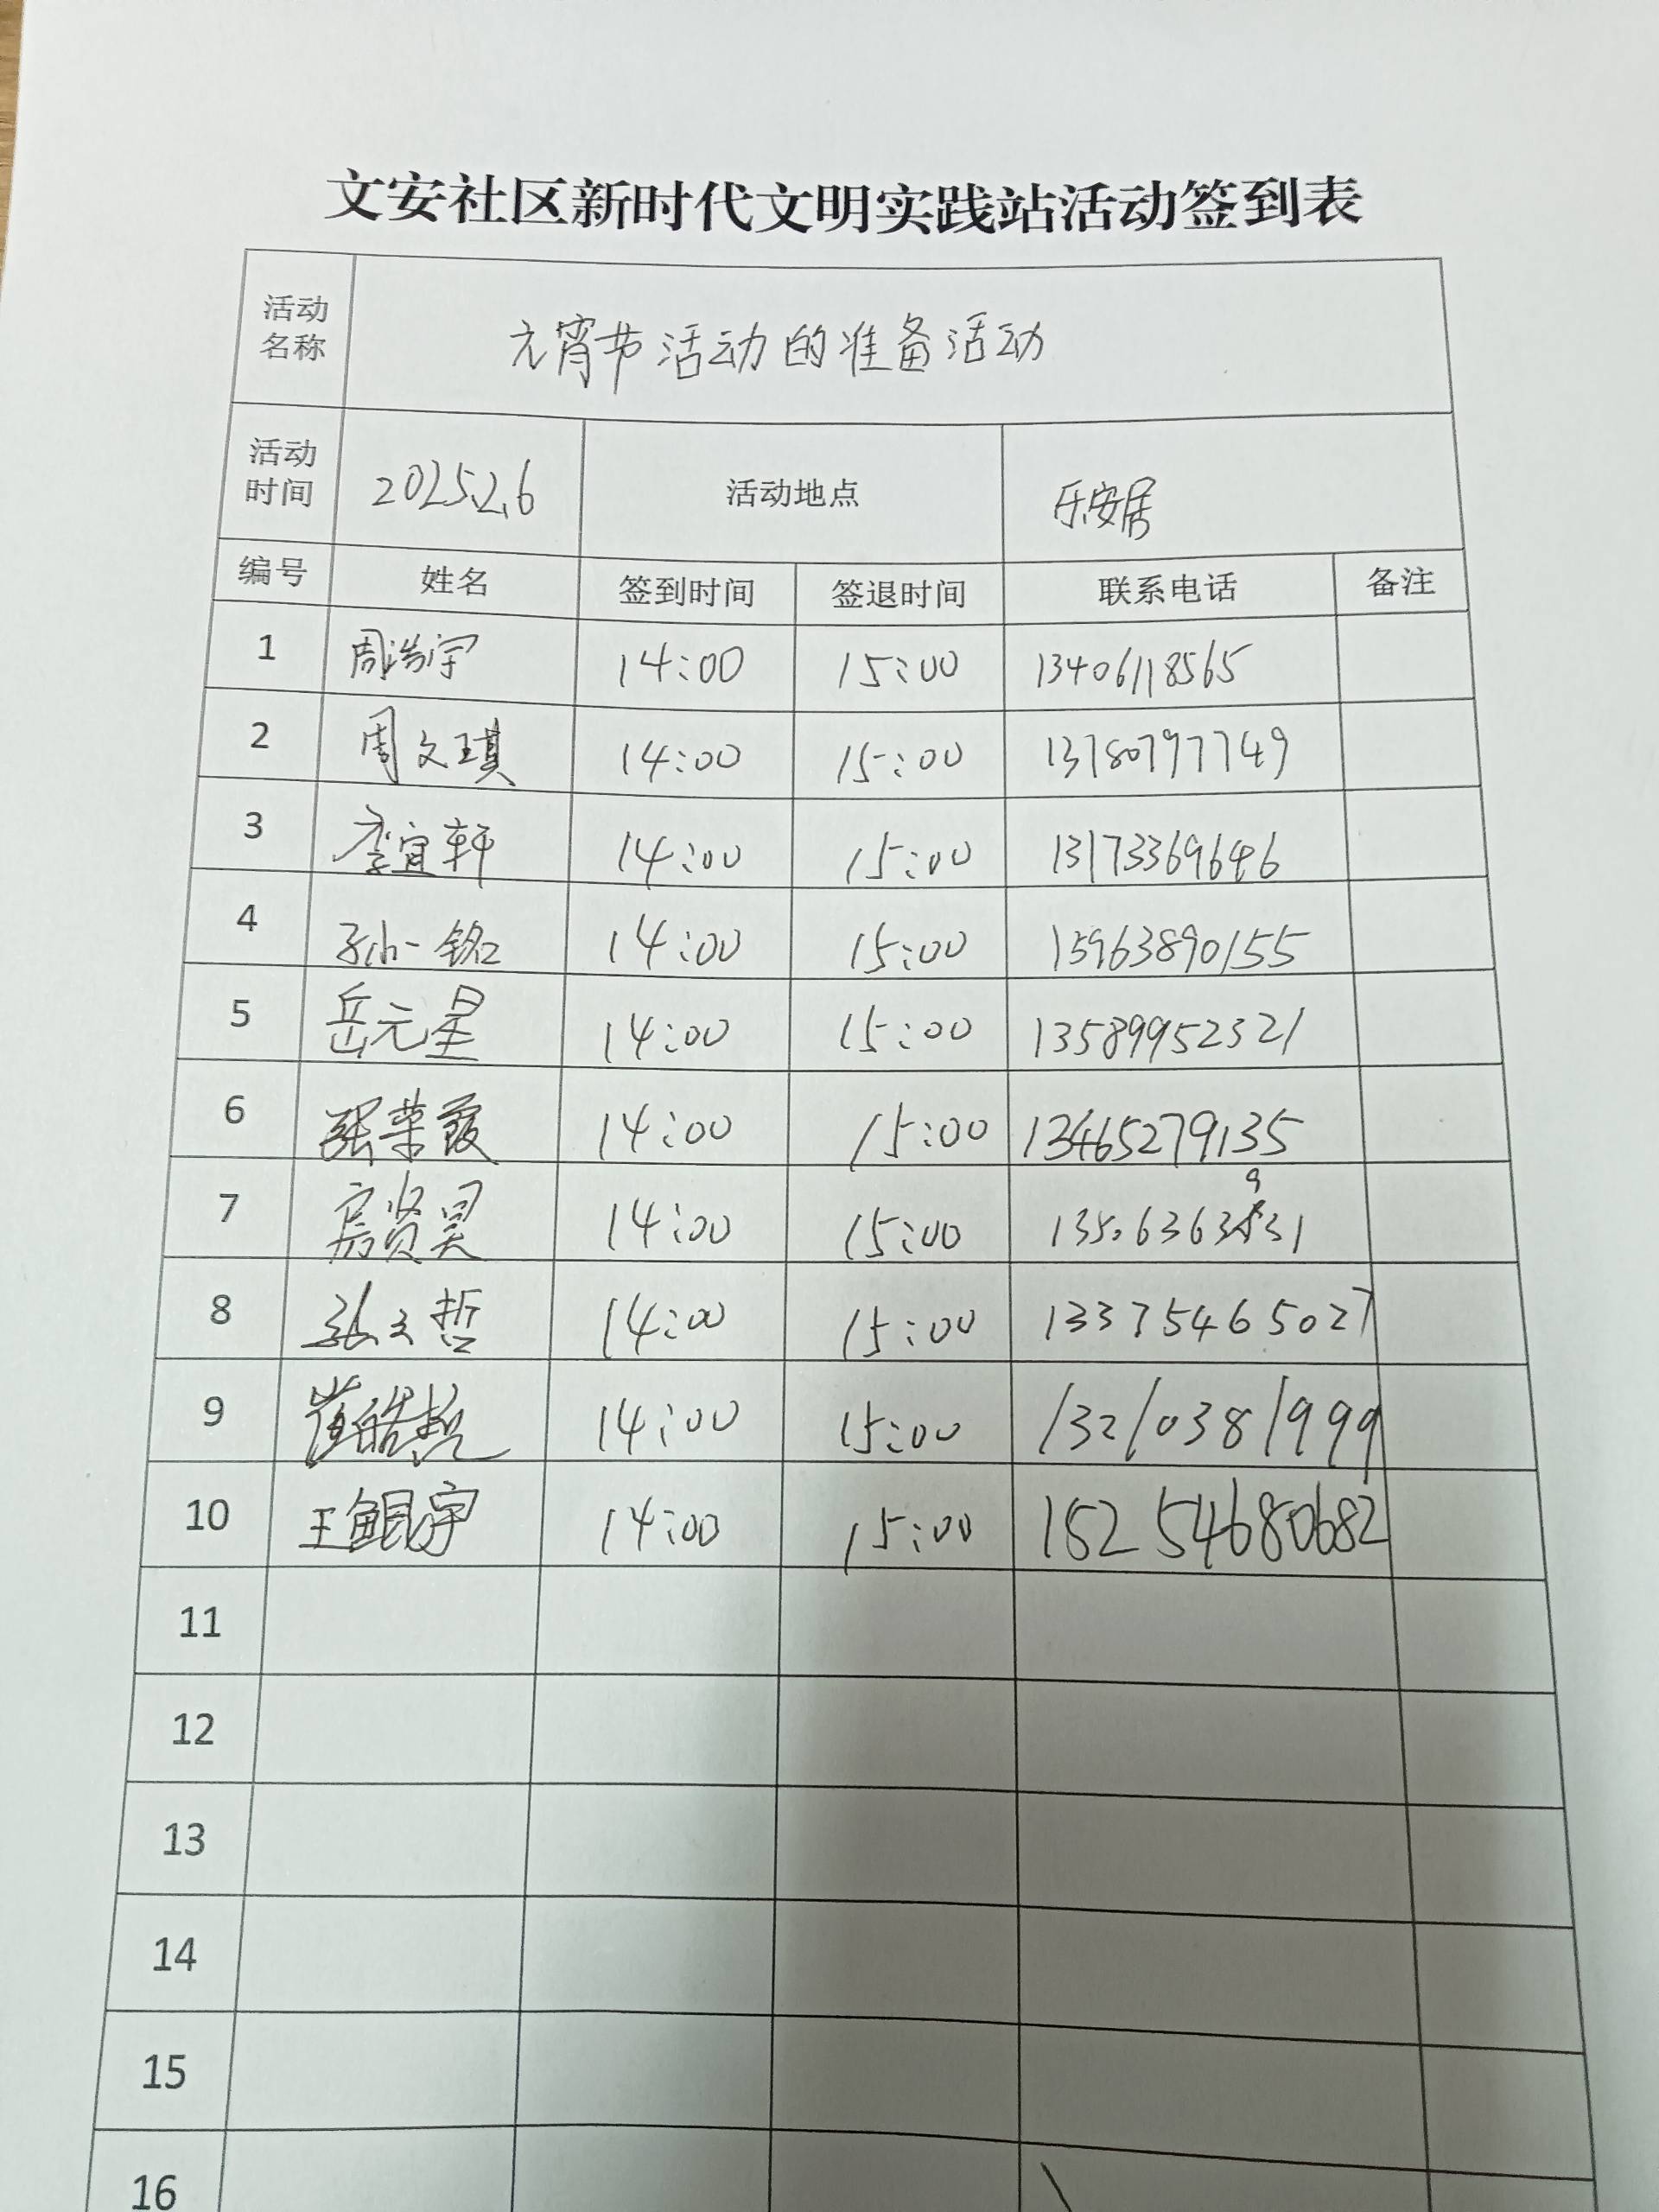 文安社区新时代文明实践站活动签到表
活动名称 元宵节活动的准备活动
活动时间 2025.2.6 活动地点 乐安居
编号 姓名 签到时间 签退时间 联系电话 备注
1 周浩宇 14:00 15:00 13406118565
2 周文琪 14:00 15:00 13780797749
3 李宜轩 14:00 15:00 13173369646
4 孙一铭 14:00 15:00 15963890155
5 岳元星 14:00 15:00 13589952321
6 张荣霞 14:00 15:00 13465279135
7 房贤昊 14:00 15:00 13506363931
8 14:00 15:00 13375465027
9 14:00 15:00 13210381999
10 王鲲宇 14:00 15:00 15254680682
11
12
13
14
15
16